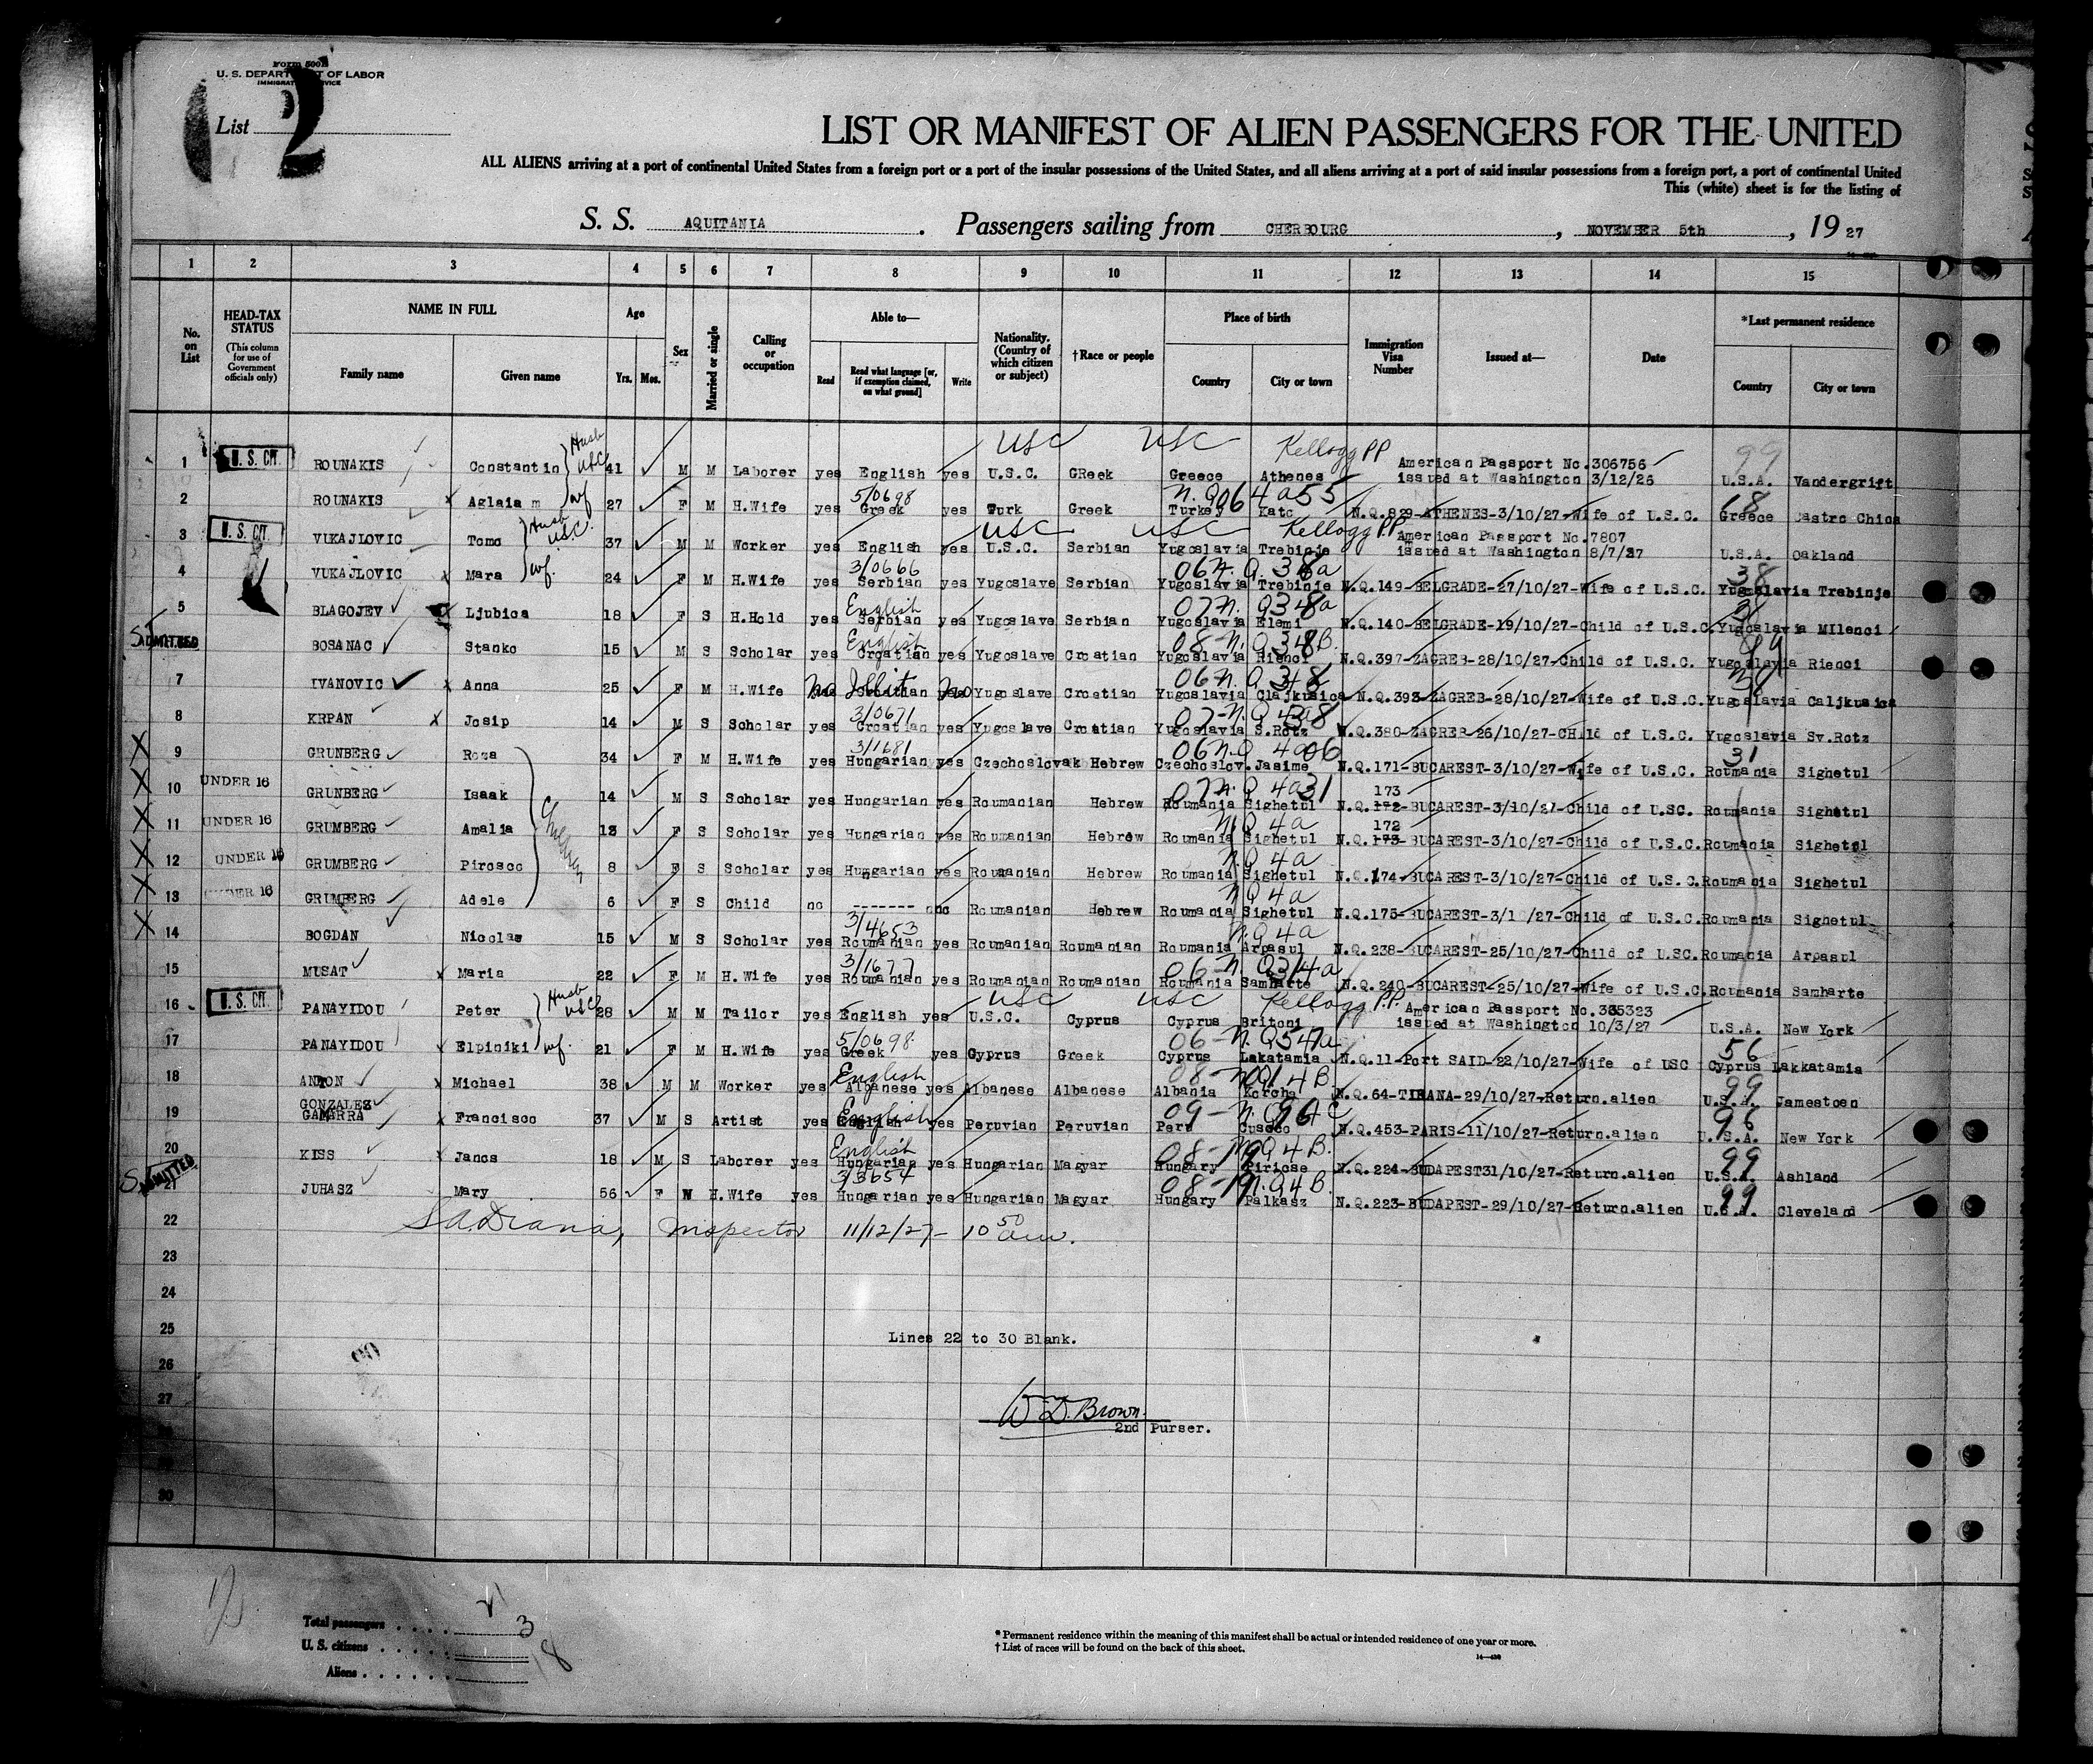 Form 500B
U. S. DEPARTMENT OF LABOR
IMMIGRATION SERVICE
List 2
LIST OR MANIFEST OF ALIEN PASSENGERS FOR THE UNITED
ALL ALIENS arriving at a port of continental United States from a foreign port or a port of the insular possessions of the United States, and all aliens arriving at a port of said insular possessions from a foreign port, a port of continental United
This (white) sheet is for the listing of
S. S. AQUITANIA . Passengers sailing from CHERBOURG , NOVEMBER 5th , 19 27
1 2 3 4 5 6 7 8 9 10 11 12 13 14 15
No. on List
HEAD-TAX STATUS (This column for use of Government officials only)
NAME IN FULL Family name Given name
Age Yrs. Mos.
Sex
Married or single
Calling or occupation
Able to— Read Read what language [or, if exemption claimed, on what ground] Write
Nationality. (Country of which citizen or subject)
†Race or people
Place of birth Country City or town
Immigration Visa Number
Issued at—
Date
*Last permanent residence Country City or town
USC USC Kellogg PP 99
1 U.S. CIT. ROUNAKIS Constantin Husb USC 41 M M Laborer yes English yes U.S.C. GReek Greece Athenes American Passport No.306756 issued at Washington 3/12/26 U.S.A. Vandergrift
5/0698 N.Q. 064a55 68
2 ROUNAKIS x Aglaia m wf 27 F M H.Wife yes Greek yes Turk Greek Turkey Kato N.Q.829-ATHENES-3/10/27-Wife of U.S.C. Greece Castro Chios
USC USC Kellogg P.P.
3 U.S. CIT. VUKAJLOVIC Tomo Husb USC. 37 M M Worker yes English yes U.S.C. Serbian Yugoslavia Trebinje American Passport No.7807 issued at Washington 8/7/27 U.S.A. Oakland
3/0666 06 N.Q. 34a 38
4 VUKAJLOVIC x Mara wf. 24 F M H.Wife yes Serbian yes Yugoslave Serbian Yugoslavia Trebinje N.Q.149-BELGRADE-27/10/27-Wife of U.S.C. Yugoslavia Trebinje
English 07 N. Q348a
5 BLAGOJEV Ljubica 18 F S H.Hold yes Serbian yes Yugoslave Serbian Yugoslavia Elemi N.Q.140-BELGRADE-19/10/27-Child of U.S.C. Yugoslavia MIlenci
English 08-N.Q 34B.
ADMITTED BOSANAC Stanko 15 M S Scholar yes Croatian yes Yugoslave Croatian Yugoslavia Rienci N.Q.397-ZAGREB-28/10/27-Child of U.S.C. Yugoslavia Rienci
06 N.Q 348
7 IVANOVIC x Anna 25 F M H.Wife no Illit no Croatian Yugoslave Croatian Yugoslavia Clajkusica N.Q.393-ZAGREB-28/10/27-Wife of U.S.C. Yugoslavia Caljkusica
3/0671 07-N.Q 438
8 KRPAN x Josip 14 M S Scholar yes Croatian yes Yugoslave Croatian Yugoslavia S.Rotz N.Q.380-ZAGREB-26/10/27-CHild of U.S.C. Yugoslavia Sv.Rotz
3/1681 06 N.Q 4a06 31
X 9 GRUNBERG Roza 34 F M H.Wife yes Hungarian yes Czechoslovak Hebrew Czechoslov. Jasime N.Q.171-BUCAREST-3/10/27-Wife of U.S.C. Roumania Sighetul
07 N.Q 4a31 173
X 10 UNDER 16 GRUNBERG Isaak 14 M S Scholar yes Hungarian yes Roumanian Hebrew Roumania Sighetul N.Q.172-BUCAREST-3/10/27-Child of USC. Roumania Sighetul
N.Q 4a 172
X 11 UNDER 16 GRUMBERG Amalia 12 F S Scholar yes Hungarian yes Roumanian Hebrew Roumania Sighetul N.Q.173-BUCAREST-3/10/27-Child of U.S.C. Roumania Sighetul
N.Q 4a
X 12 UNDER 16 GRUMBERG Pirosco 8 F S Scholar yes Hungarian yes Roumanian Hebrew Roumania Sighetul N.Q.174-BUCAREST-3/10/27-Child of U.S.C. Roumania Sighetul
N.Q 4a
X 13 UNDER 16 GRUMBERG Adele 6 F S Child no ------- no Roumanian Hebrew Roumania Sighetul N.Q.175-BUCAREST-3/1 /27-Child of U.S.C. Roumania Sighetul
3/4653 N.Q 4a
X 14 BOGDAN Nicolas 15 M S Scholar yes Roumanian yes Roumanian Roumanian Roumania Arpasul N.Q.238-BUCAREST-25/10/27-Child of USC. Roumania Arpasul
3/1677 06-N. Q314a
15 MUSAT x Maria 22 F M H.Wife yes Roumanian yes Roumanian Roumanian Roumania Samharte N.Q.240-BUCAREST-25/10/27-Wife of U.S.C. Roumania Samharte
USC USC Kellogg P.P.
16 U.S. CIT. PANAYIDOU Peter Husb USC 28 M M Tailor yes English yes U.S.C. Cyprus Cyprus Britoni American Passport No.335323 issued at Washington 10/3/27 U.S.A. New York
5/0698 06-N. Q547a 56
17 PANAYIDOU x Elpiniki wf. 21 F M H.Wife yes Greek yes Cyprus Greek Cyprus Lakatamia N.Q.11-Port SAID-22/10/27-Wife of USC Cyprus Lakkatamia
English 99
18 ANTON x Michael 38 M M Worker yes Albanese yes Albanese Albanese Albania Korcha N.Q.64-TIRANA-29/10/27-Return.alien U.S.A. Jamestoen
GONZALEZ English 96
19 GAMARRA x Francisco 37 M S Artist yes English yes Peruvian Peruvian Peru Cuseco N.Q.453-PARIS-11/10/27-Return.alien U.S.A. New York
English 99
20 KISS x Janos 18 M S Laborer yes Hungarian yes Hungarian Magyar Hungary Piricse N.Q.224-BUDAPEST31/10/27-Return.alien U.S.A. Ashland
3/3654 99
ADMITTED 21 JUHASZ Mary 56 F W H.Wife yes Hungarian yes Hungarian Magyar Hungary Palkasz N.Q.223-BUDAPEST-29/10/27-Return.alien U.S.A. Cleveland
22 S.A. Diana, Inspector 11/12/27- 10 50 am.
23
24
25 Lines 22 to 30 Blank.
26
27
W D. Brown
2nd Purser.
30
Total passengers 21
U. S. citizens 3
Aliens 18
* Permanent residence within the meaning of this manifest shall be actual or intended residence of one year or more.
† List of races will be found on the back of this sheet.